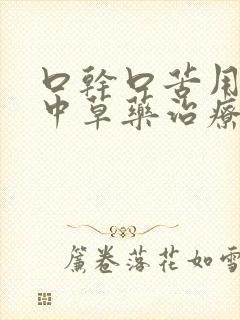 口幹口苦用
中草藥治療
簾卷落花如雪